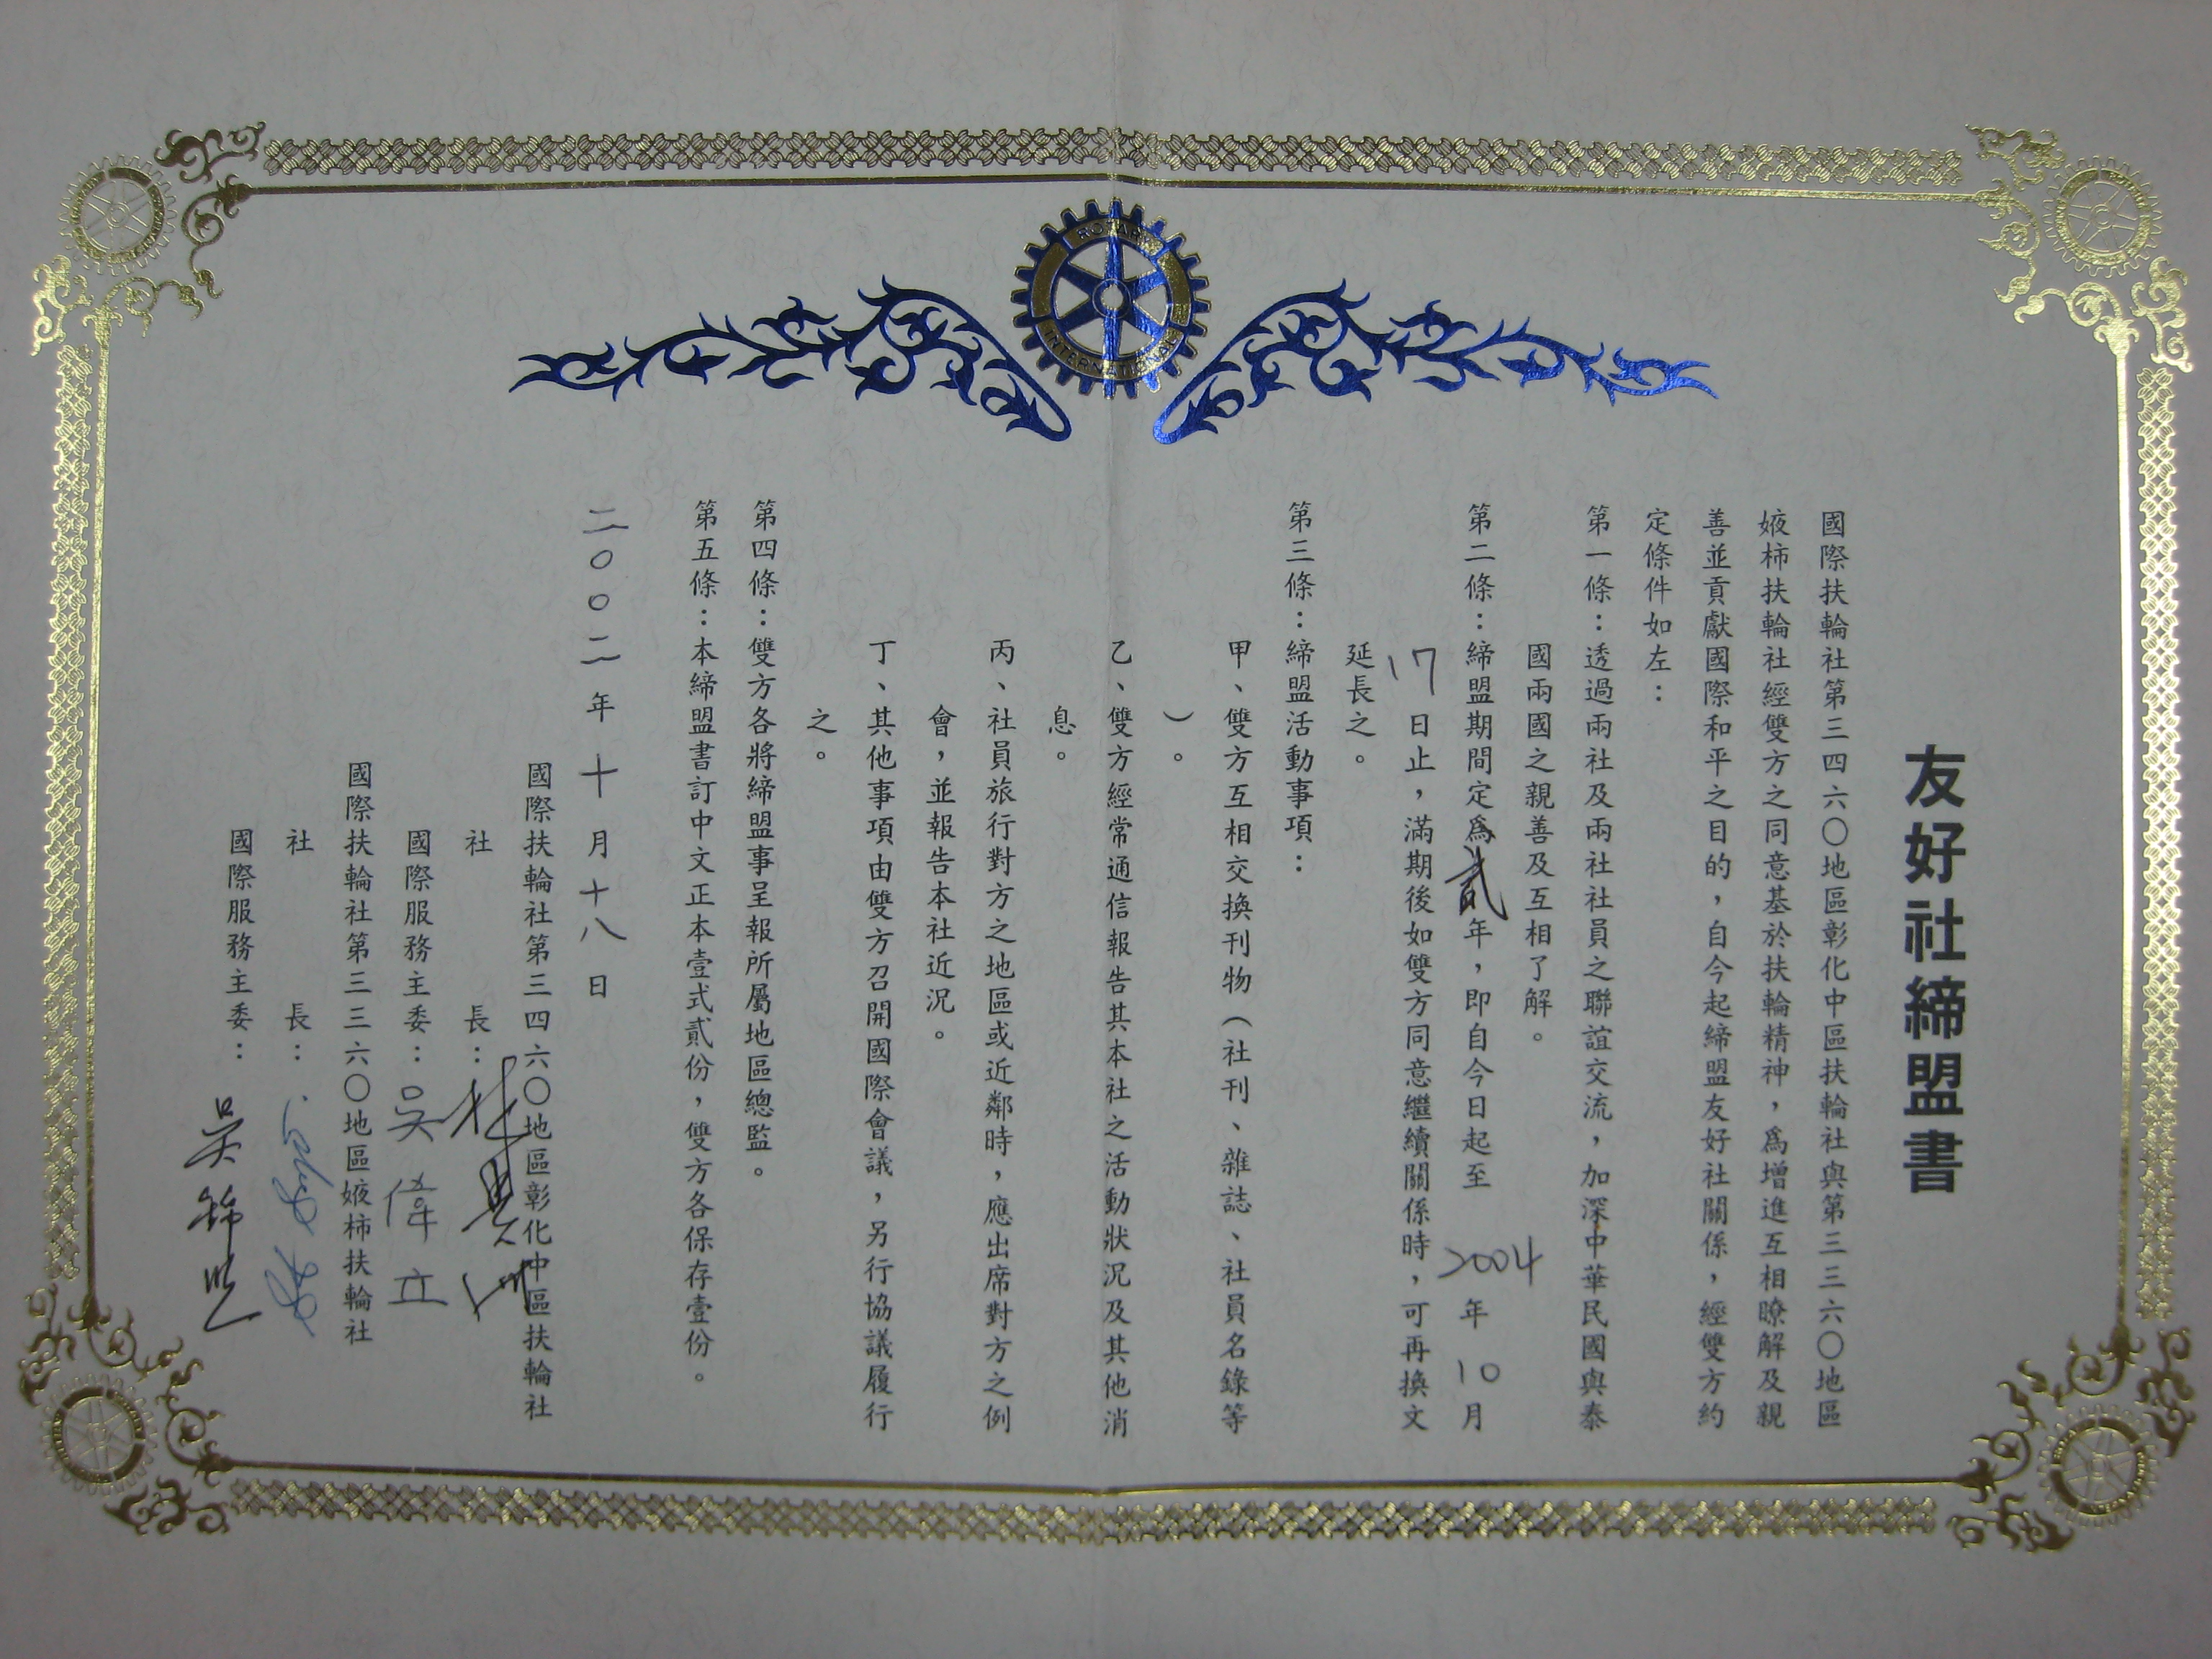 ROTARY
INTERNATIONAL
友好社締盟書
國際扶輪社第三四六〇地區彰化中區扶輪社與第三三六〇地區
婏柿扶輪社經雙方之同意基於扶輪精神，爲增進互相瞭解及親
善並貢獻國際和平之目的，自今起締盟友好社關係，經雙方約
定條件如左：
第一條：透過兩社及兩社社員之聯誼交流，加深中華民國與泰
國兩國之親善及互相了解。
第二條：締盟期間定爲貳年，即自今日起至2004年10月
17日止，滿期後如雙方同意繼續關係時，可再換文
延長之。
第三條：締盟活動事項：
甲、雙方互相交換刊物（社刊、雜誌、社員名錄等
）。
乙、雙方經常通信報告其本社之活動狀況及其他消
息。
丙、社員旅行對方之地區或近鄰時，應出席對方之例
會，並報告本社近況。
丁、其他事項由雙方召開國際會議，另行協議履行
之。
第四條：雙方各將締盟事呈報所屬地區總監。
第五條：本締盟書訂中文正本壹式貳份，雙方各保存壹份。
二〇〇二年十月十八日
國際扶輪社第三四六〇地區彰化中區扶輪社
社長：林
國際服務主委：吳偉立
國際扶輪社第三三六〇地區婏柿扶輪社
社長：
國際服務主委：吳